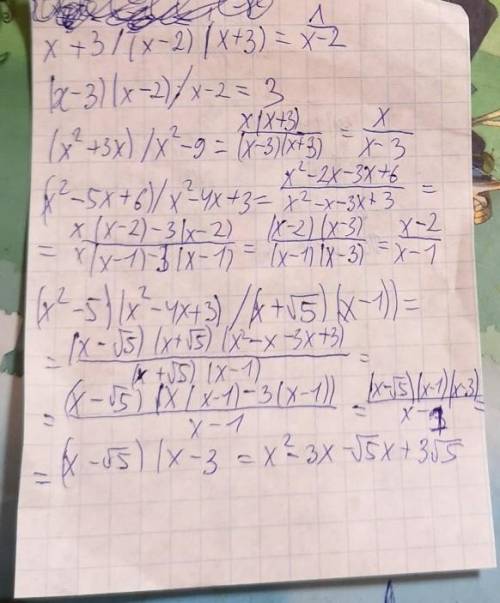 x + 3 / (x-2) (x+3) = 1/(x-2)
(x-3)(x-2) / x-2 = 3
(x²+3x) / x²-9 = x(x+3)/((x-3)(x+3)) = x/(x-3)
(x²-5x+6) / x²-4x+3 = (x²-2x-3x+6)/(x²-x-3x+3) =
= (x(x-2)-3(x-2))/(x(x-1)-3(x-1)) = ((x-2)(x-3))/((x-1)(x-3)) = (x-2)/(x-1)
(x²-5)(x²-4x+3) / (x+√5)(x-1)) =
= ((x-√5)(x+√5)(x²-x-3x+3))/((x+√5)(x-1)) =
= ((x-√5)(x(x-1)-3(x-1)))/(x-1) = ((x-√5)(x-1)(x-3))/(x-1) =
= (x-√5)(x-3 = x²-3x-√5x+3√5